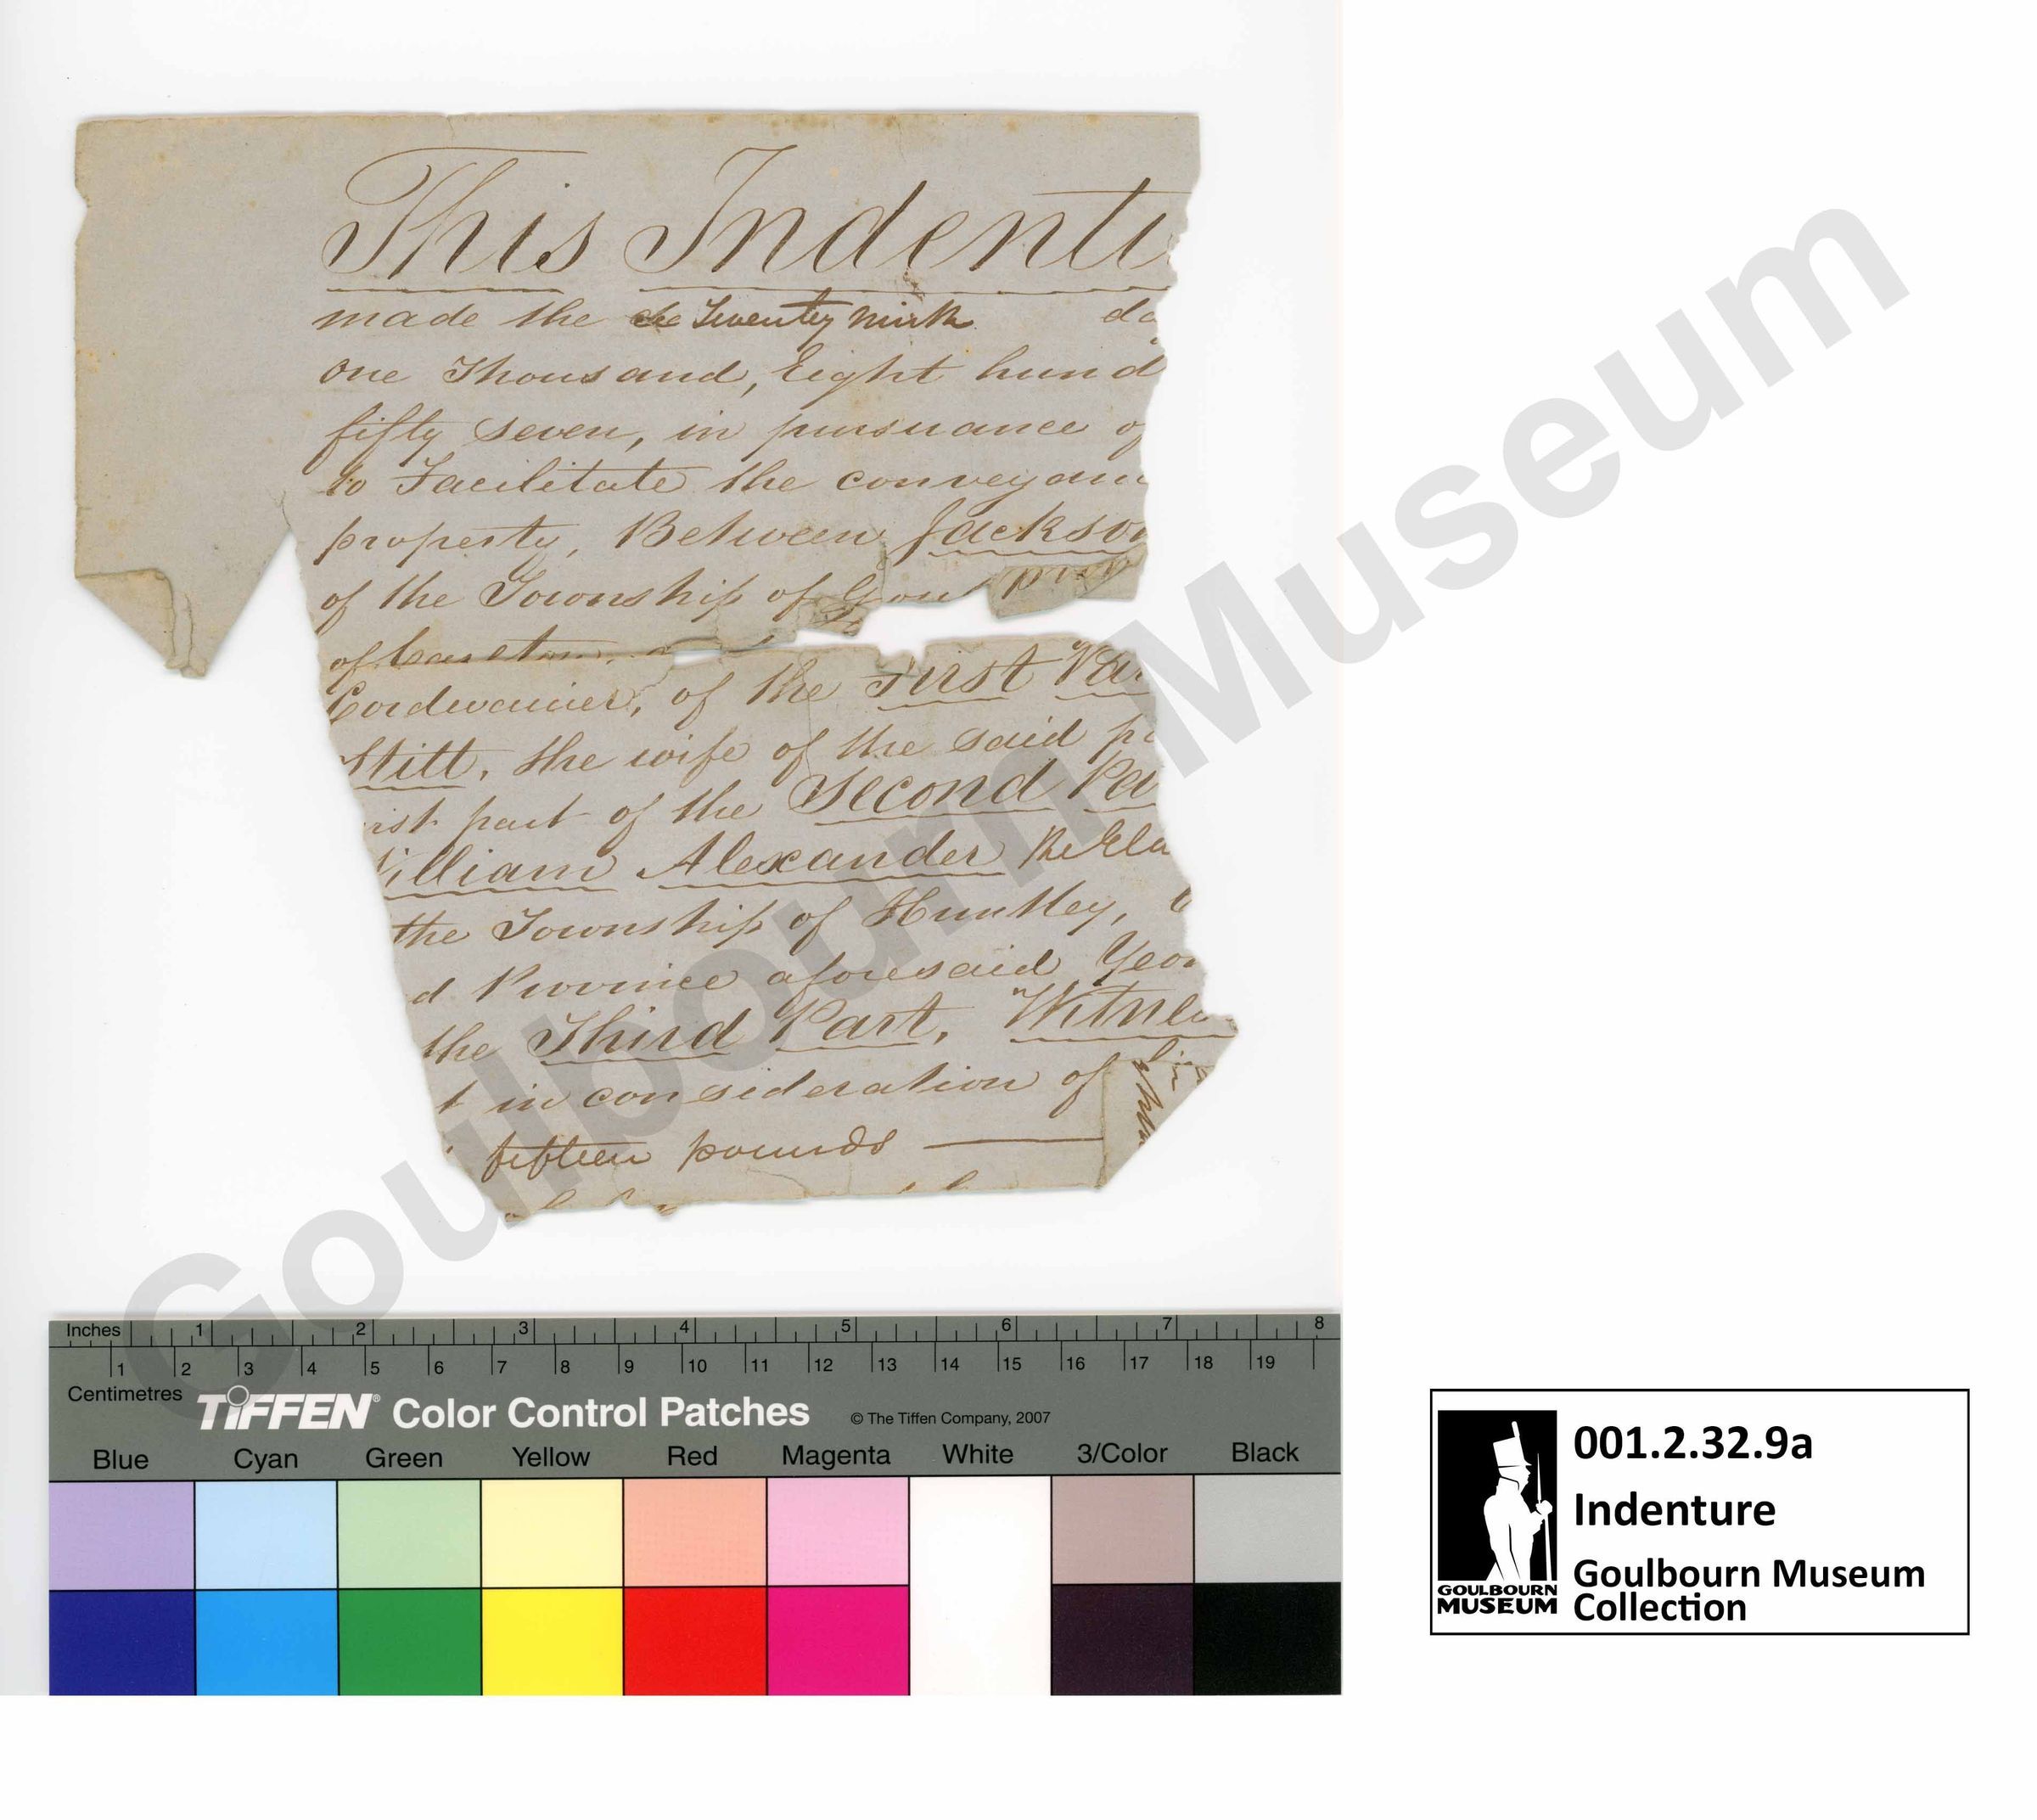 This Indentu
made the Twenty ninth da
One Thousand, Eight hund
fifty seven, in pursuance of
to Facilitate the conveyanc
property, Between Jackson
of the Township of Goul
of Carleton,
Cordwainer, of the First Par
Stitt, the wife of the said pa
irst part of the Second Pa
William Alexander
the Township of Huntley,
d Province aforesaid Yeo
the Third Part, Witnes
t in consideration of
fifteen pounds
Goulbourn Museum
Inches 1 2 3 4 5 6 7 8
1 2 3 4 5 6 7 8 9 10 11 12 13 14 15 16 17 18 19
Centimetres
TIFFEN® Color Control Patches © The Tiffen Company, 2007
Blue Cyan Green Yellow Red Magenta White 3/Color Black
001.2.32.9a
Indenture
Goulbourn Museum
Collection
GOULBOURN
MUSEUM